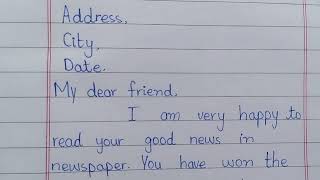 Address,
City,
Date.
My dear friend,
I am very happy to
read your good news in
newspaper. You have won the